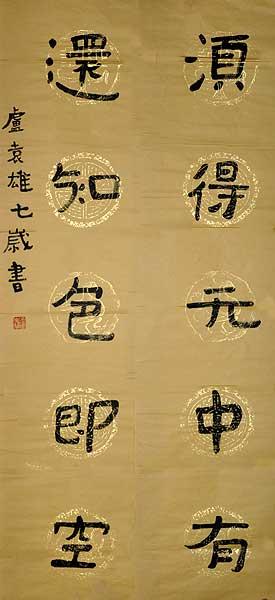 湏得无中有
還知色即空
盧袁雄七歲書